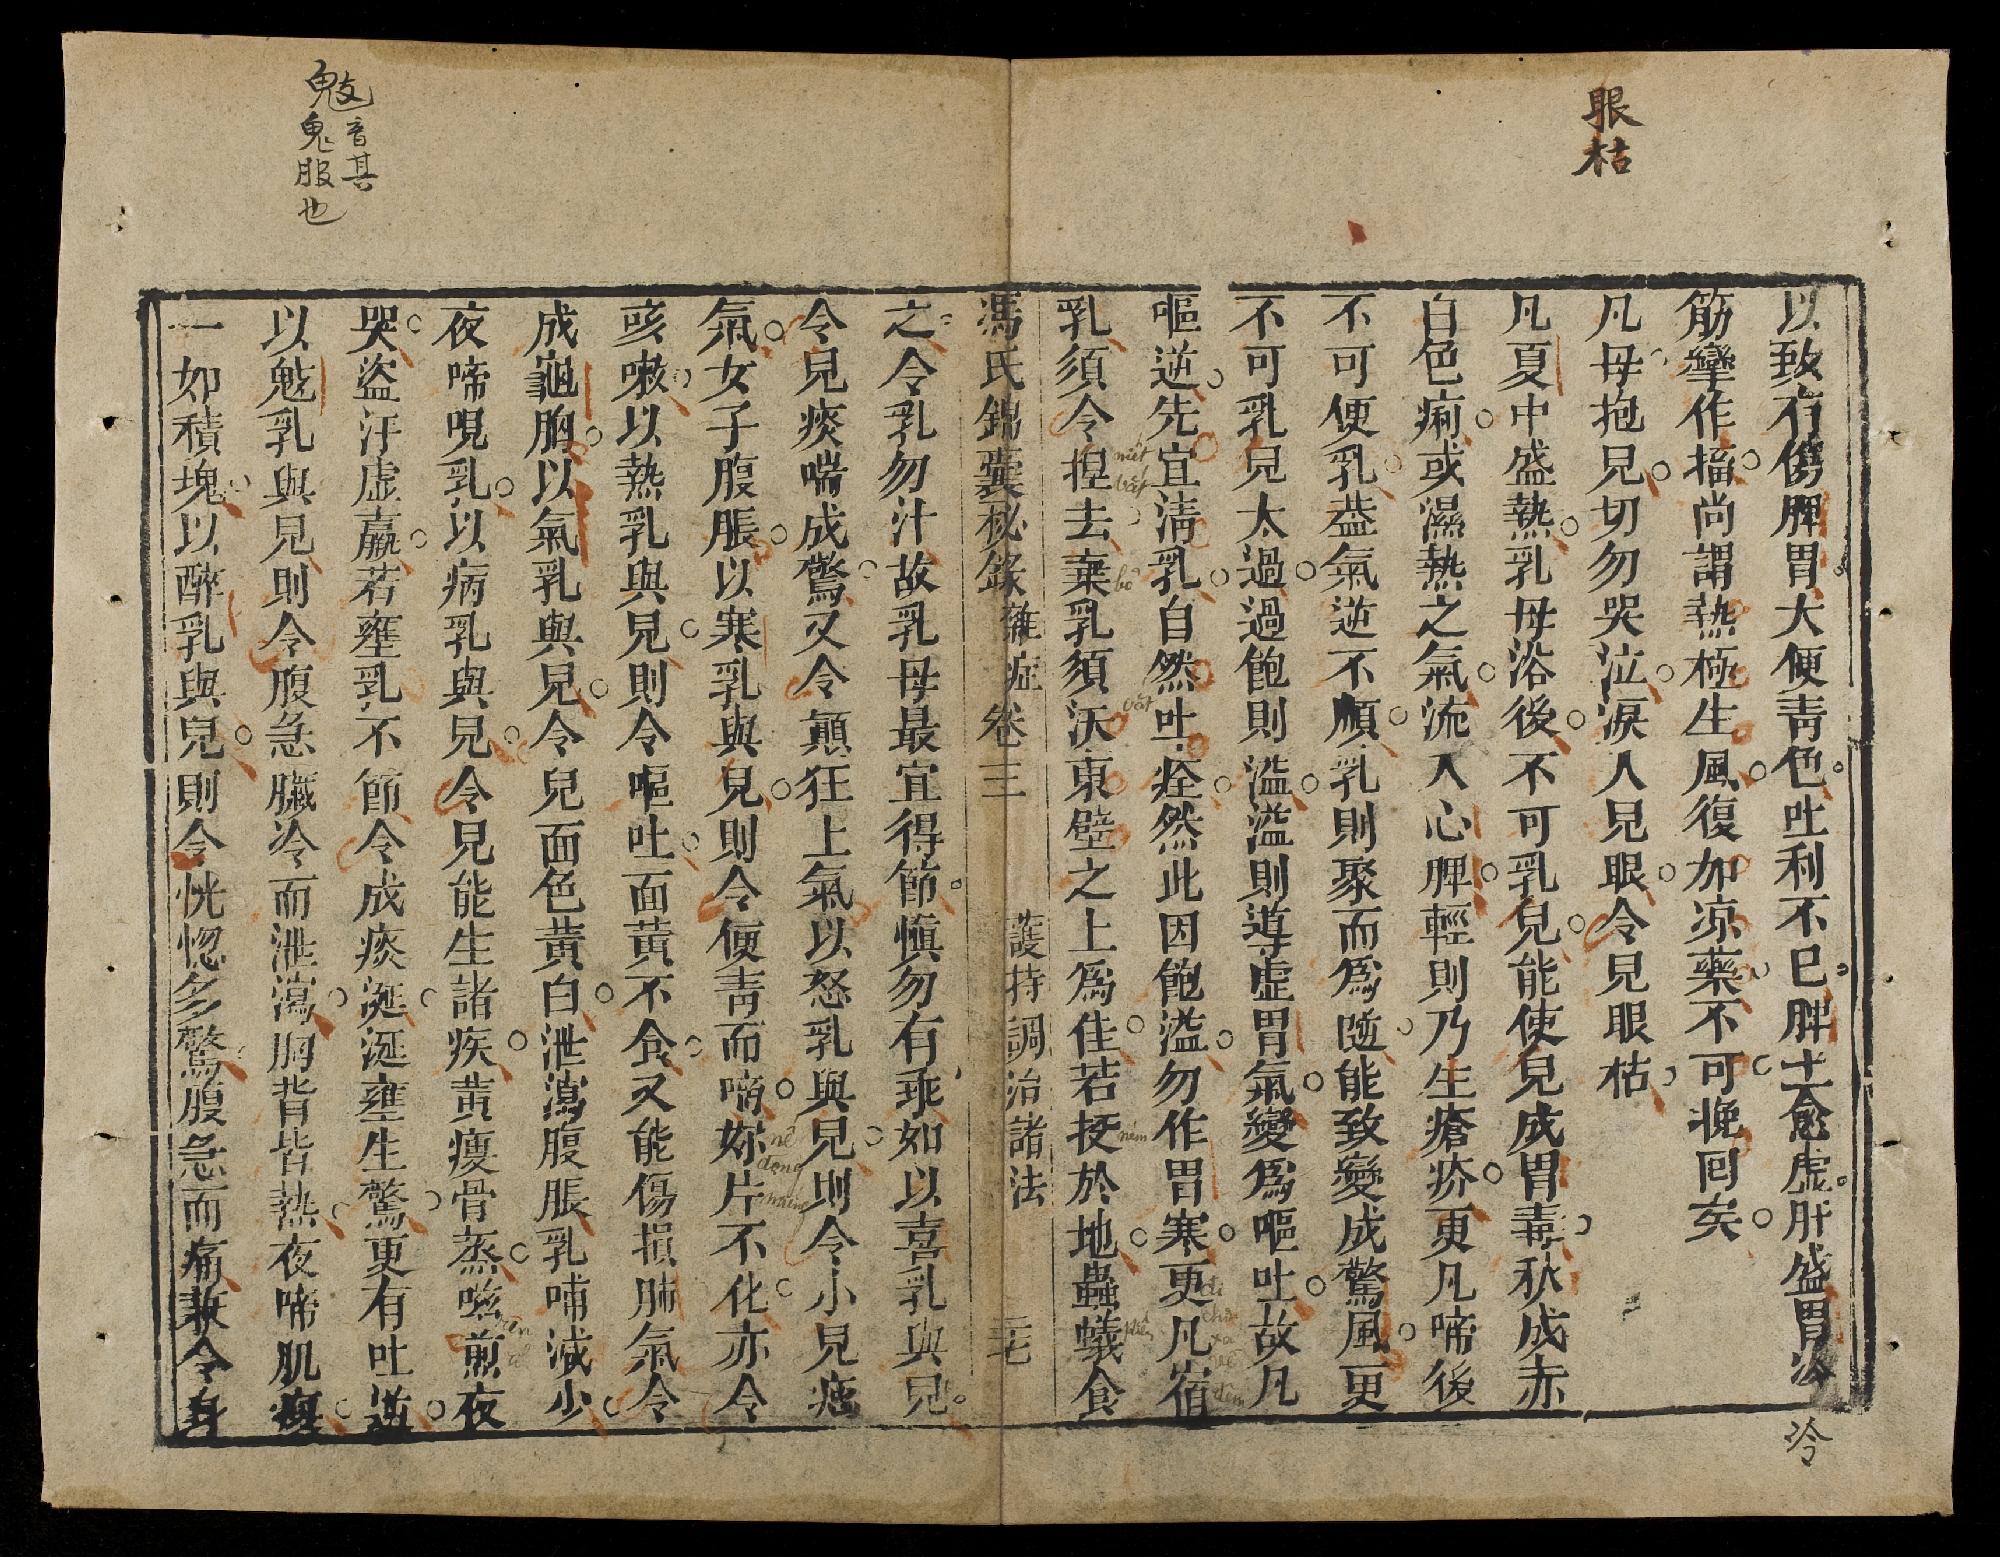 眼枯
以致有傷脾胃大便青色吐利不已脾土愈虚肝盛胃冷
冷
筋攣作搐尚謂熱極生風復加凉藥不可挽回矣
凡母抱兒切勿哭泣淚入兒眼令兒眼枯
凡夏中盛熱乳母浴後不可乳兒能使兒成胃毒秋成赤
白色痢或濕熱之氣流入心脾輕則乃生瘡疥更凡啼後
不可便乳葢氣逆不順乳則聚而為隨能致變成驚風更
不可乳兒太過過飽則溢溢則導虚胃氣變為嘔吐故凡
嘔逆先宜淸乳自然吐痊然此因飽溢勿作胃寒更凡宿
乳須令捏去棄乳須沃東壁之上為佳若抆於地蟲蟻食
馮氏錦囊秘錄 雜症 卷三 護持調治諸法 三七
之令乳勿汁故乳母最宜得節愼勿有乖如以喜乳與兒
令兒痰喘成驚又令顛狂上氣以怒乳與兒則令小兒疝
氣女子腹脹以寒乳與兒則令便靑而啼妳片不化亦令
咳嗽以熱乳與兒則令嘔吐面黃不食又能傷損肺氣令
成龜胸以氣乳與兒令兒面色黃白泄瀉腹脹乳哺減少
夜啼哯乳以病乳與兒令兒能生諸疾黃瘦骨蒸啖煎夜
哭盜汗虚羸若壅乳不節令成痰涎涎壅生驚更有吐逆
以鬾乳與兒則令腹急臟冷而泄瀉胸背皆熱夜啼肌瘦
一如積塊以醉乳與兒則令恍惚多驚腹急而痛兼令身
鬾音其
鬼服也